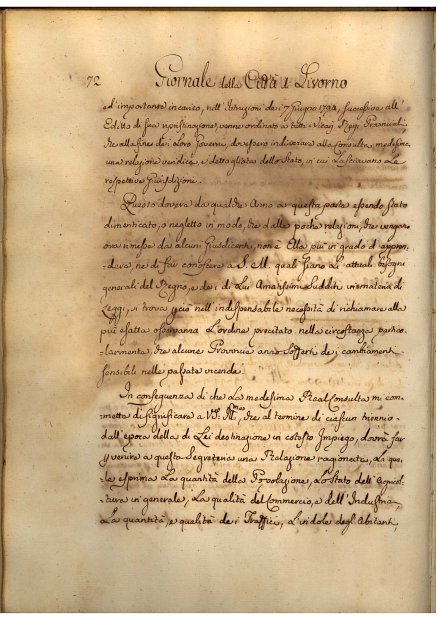 72 Giornale della Città di Livorno
ed importante incarico, nell'Istruzioni dei 7 Giugno 1794, successive all'
Editto di sua ripristinazione, venne ordinato a tutti i Vicari Regj Provinciali,
che alla fine dei Loro Governi, dovessero indirizzare alla Consulta medesima
una relazione veridica, e dettagliata dello Stato, in cui Lasciavano Le
respettive Giurisdizioni.
Questo dovere da qualche Anno a questa parte essendo stato
dimenticato, o negletto in modo, che dalle poche relazioni, che vengono
ora rimesse da alcuni Giusdicenti, non è Ella più in grado d'appren-
dere, nè di far conoscere a S. M. quali siano Li attuali bisogni
generali del Regno, e dei di Lui Amatissimi Sudditi in materia di
Leggi, si trova perciò nell'indispensabile necessità di richiamare alla
più esatta osservanza L'ordine precitato nella circostanza partico-
larmente, che alcune Provincie anno sofferti dei cambiamenti
sensibili nelle passate vicende.
In conseguenza di che La medesima Real Consulta mi com-
mette di significare a VS. Ill.ma, che al termine di ciascun triennio
dall'epoca della di Lei destinazione in cotesto Impiego, dovrà far
pervenire a questa Segreteria una Relazione ragionata, La qua-
le esprima La quantità della Popolazione, Lo Stato dell'Agricol-
tura in generale, La qualità del Commercio, e dell'Industria,
La quantità, e qualità dei Traffici, L'indole degl'Abitanti,